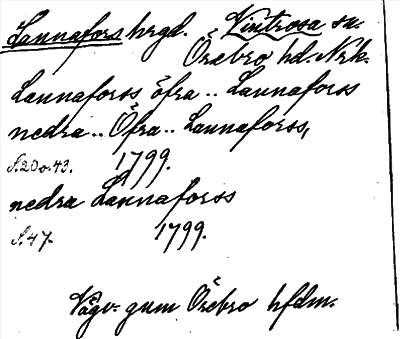 Lannafors hrgd. Vintrosa sn.
Örebro hd. Nrk.
Lannaforss öfra .. Lannaforss
nedra .. Öfra .. Lannaforss,
S. 23 o. 43. 1799.
nedra Lannaforss
S. 47. 1799.
Vägv. gnm Örebro hfdm.